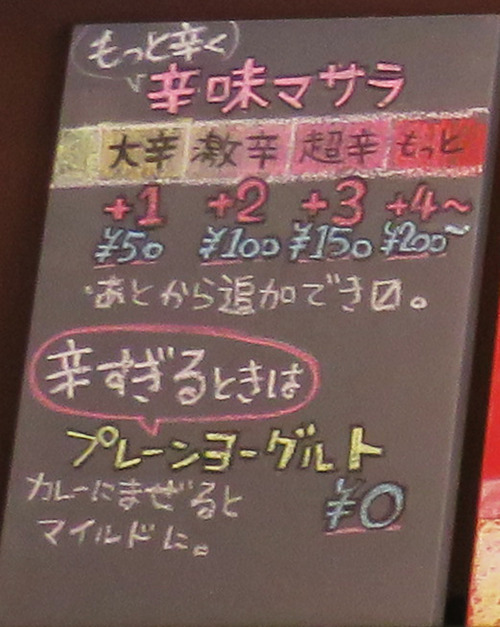 もっと辛く
辛味マサラ
大辛 激辛 超辛 もっと
+1 +2 +3 +4~
¥50 ¥100 ¥150 ¥200~
・あとから追加でき〼。
辛すぎるときは
プレーンヨーグルト
カレーにまぜると
マイルドに。
¥0